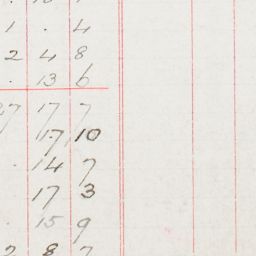 1 . 4
2 4 8
. 13 6
27 17 7
17 10
. 14 7
17 3
. 15 9
2 8 7